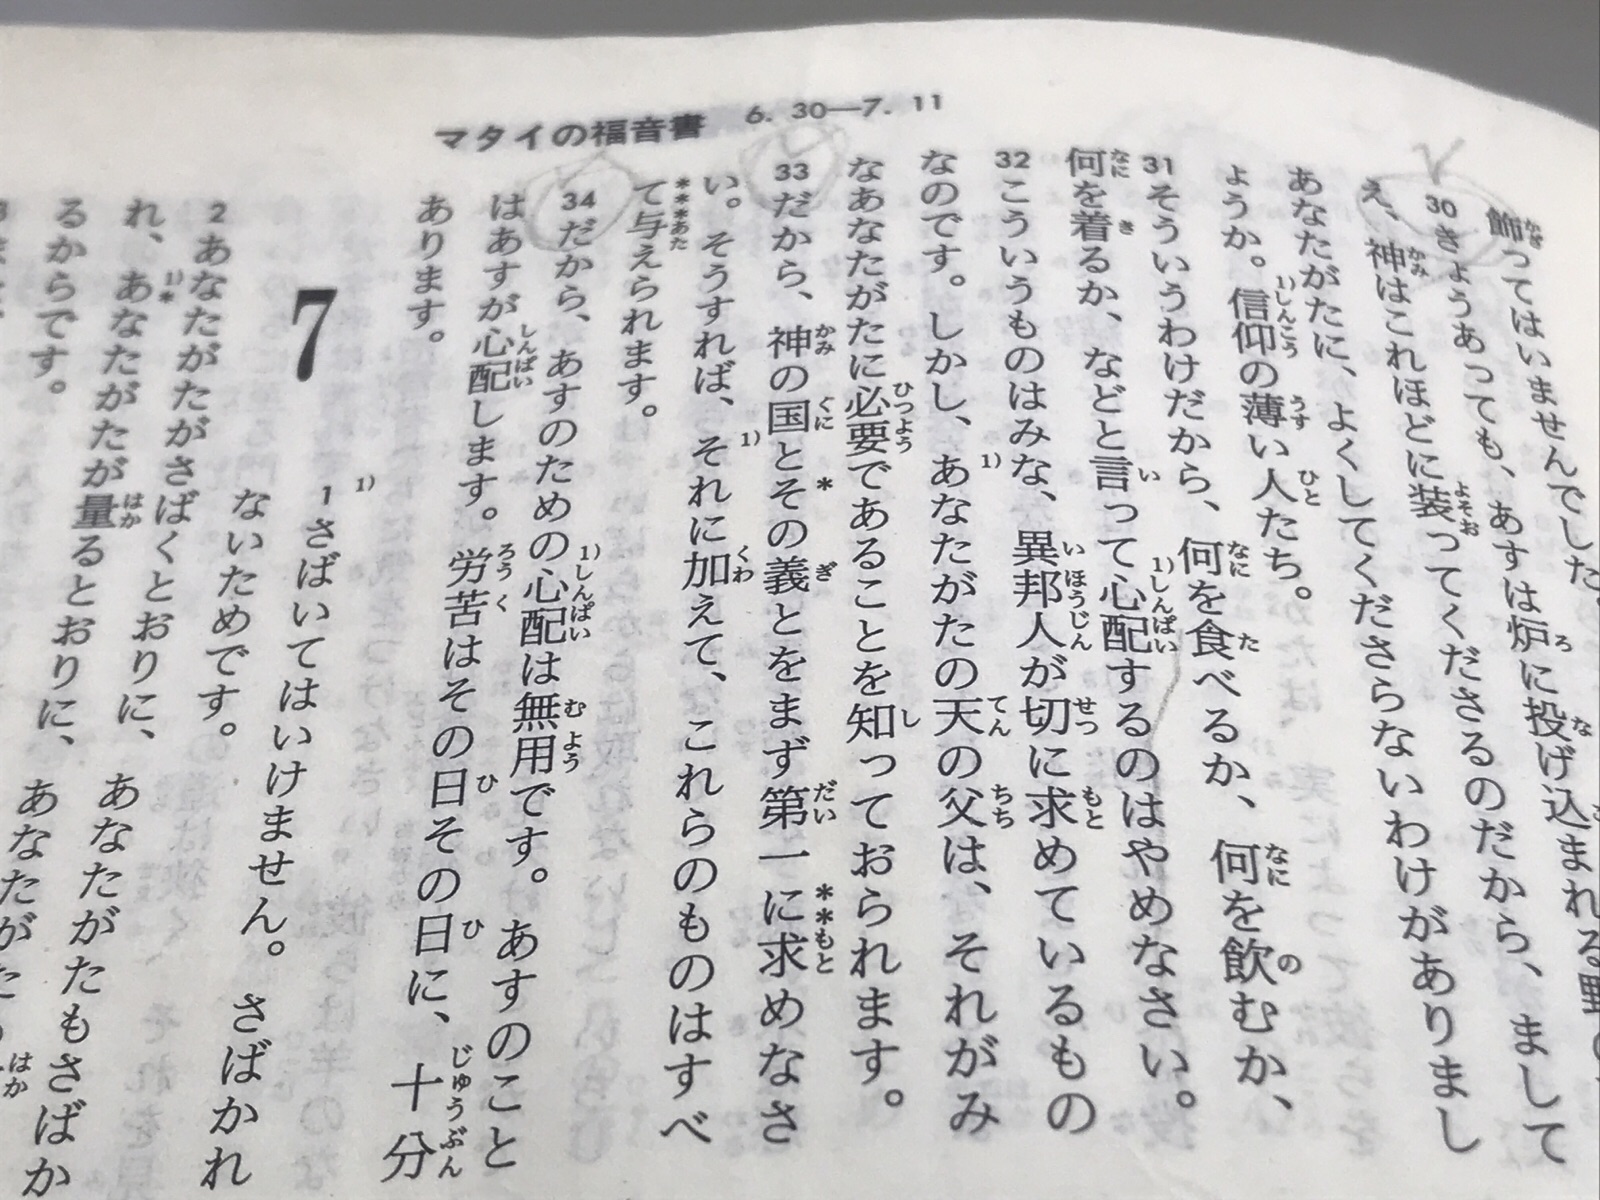 マタイの福音書 6. 30―7. 11
飾ってはいませんでした。
30きょうあっても、あすは炉に投げ込まれる野の
え、神はこれほどに装ってくださるのだから、まして
あなたがたに、よくしてくださらないわけがありまし
ょうか。信仰の薄い人たち。
31そういうわけだから、何を食べるか、何を飲むか、
何を着るか、などと言って心配するのはやめなさい。
32こういうものはみな、異邦人が切に求めているもの
なのです。しかし、あなたがたの天の父は、それがみ
なあなたがたに必要であることを知っておられます。
33だから、神の国とその義とをまず第一に求めなさ
い。そうすれば、それに加えて、これらのものはすべ
て与えられます。
34だから、あすのための心配は無用です。あすのこと
はあすが心配します。労苦はその日その日に、十分
あります。
7
1さばいてはいけません。さばかれ
ないためです。
2あなたがたがさばくとおりに、あなたがたもさばか
れ、あなたがたが量るとおりに、あなたがたも
るからです。